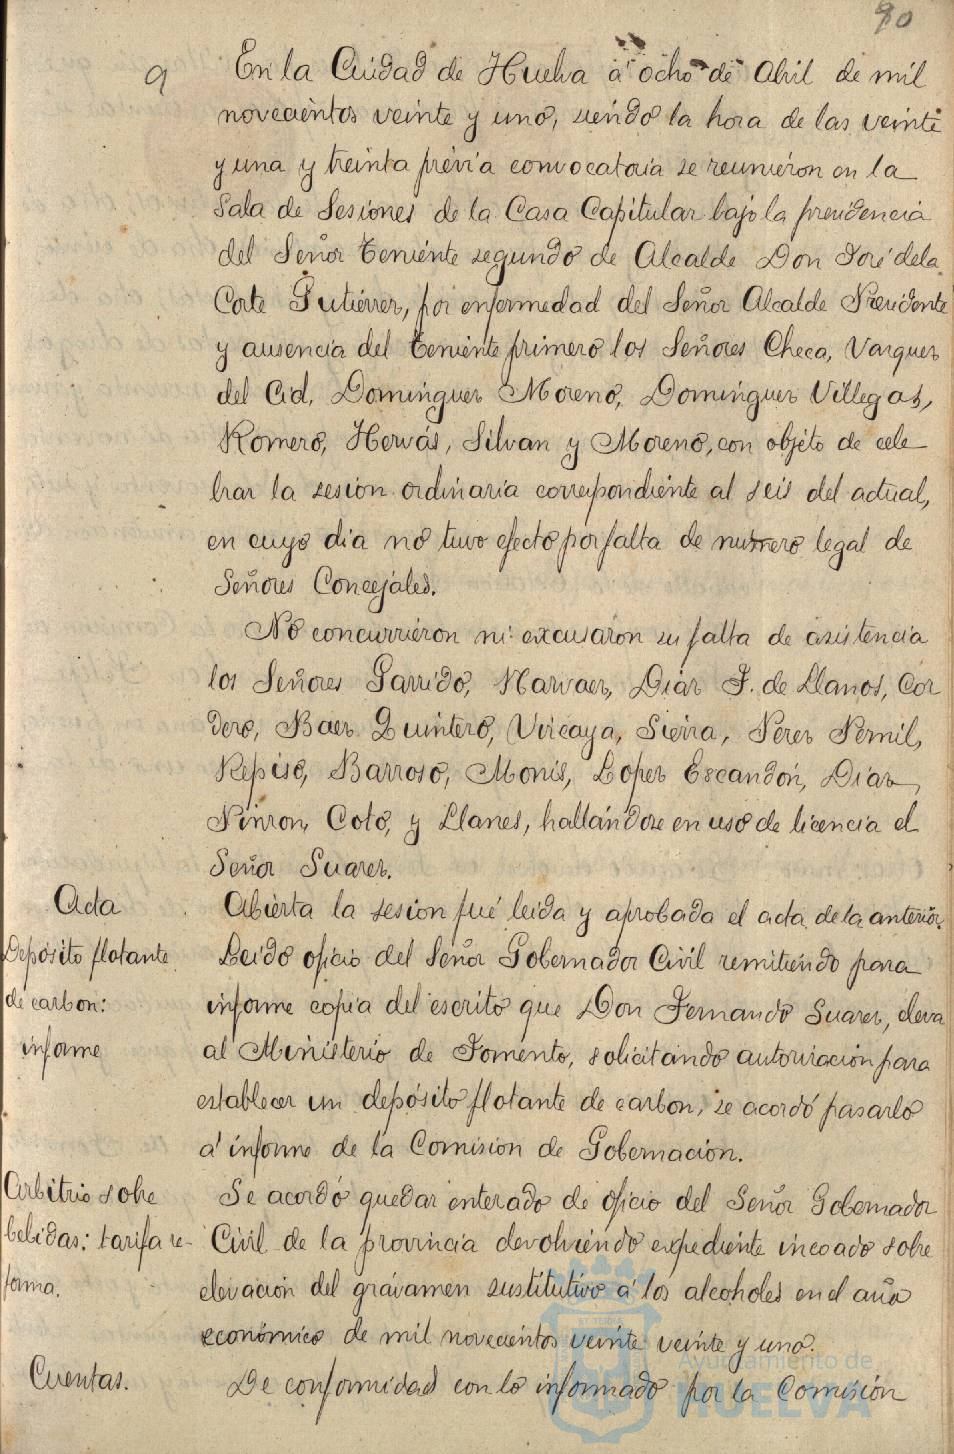 90
9
En la Ciudad de Huelva á ocho de Abril de mil
novecientos veinte y uno, siendo la hora de las veinte
y una y treinta prévia convocatoria se reunieron en la
Sala de Sesiones de la Casa Capitular bajo la presidencia
del Señor Teniente segundo de Alcalde Don José de la
Corte Gutiérrez, por enfermedad del Señor Alcalde Presidente
y ausencia del Teniente primero los Señores Checa, Vazquez
del Cid, Dominguez Moreno, Dominguez Villegas,
Romero, Hervás, Silvan y Moreno, con objeto de cele
brar la sesion ordinaria correspondiente al seis del actual,
en cuyo dia no tuvo efecto por falta de numero legal de
Señores Concejales.
No concurrieron ni excusaron su falta de asistencia
los Señores Garrido, Narvaez, Diaz F. de Llanos, Cor
dero, Baez Quintero, Vizcaya, Sierra, Perez Pernil,
Repiso, Barroso, Monís, Lopez Escandón, Diaz,
Pinzon, Coto, y Llanes, hallándose en uso de licencia el
Señor Suarez.
Acta
Abierta la sesion fué leida y aprobada el acta de la anterior.
Depósito flotante
de carbon:
informe
Leido oficio del Señor Gobernador Civil remitiendo para
informe copia del escrito que Don Fernando Suarez, eleva
al Ministerio de Fomento, solicitando autorizacion para
establecer un depósito flotante de carbon, se acordó pasarlo
á informe de la Comision de Gobernacion.
Arbitrio sobre
bebidas: tarifa re-
forma.
Se acordó quedar enterado de oficio del Señor Gobernador
Civil de la provincia devolviendo expediente incoado sobre
elevacion del grávamen sustitutivo á los alcoholes en el año
económico de mil novecientos veinte veinte y uno.
Cuentas.
De conformidad con lo informado por la Comisión
Ayuntamiento de
HUELVA